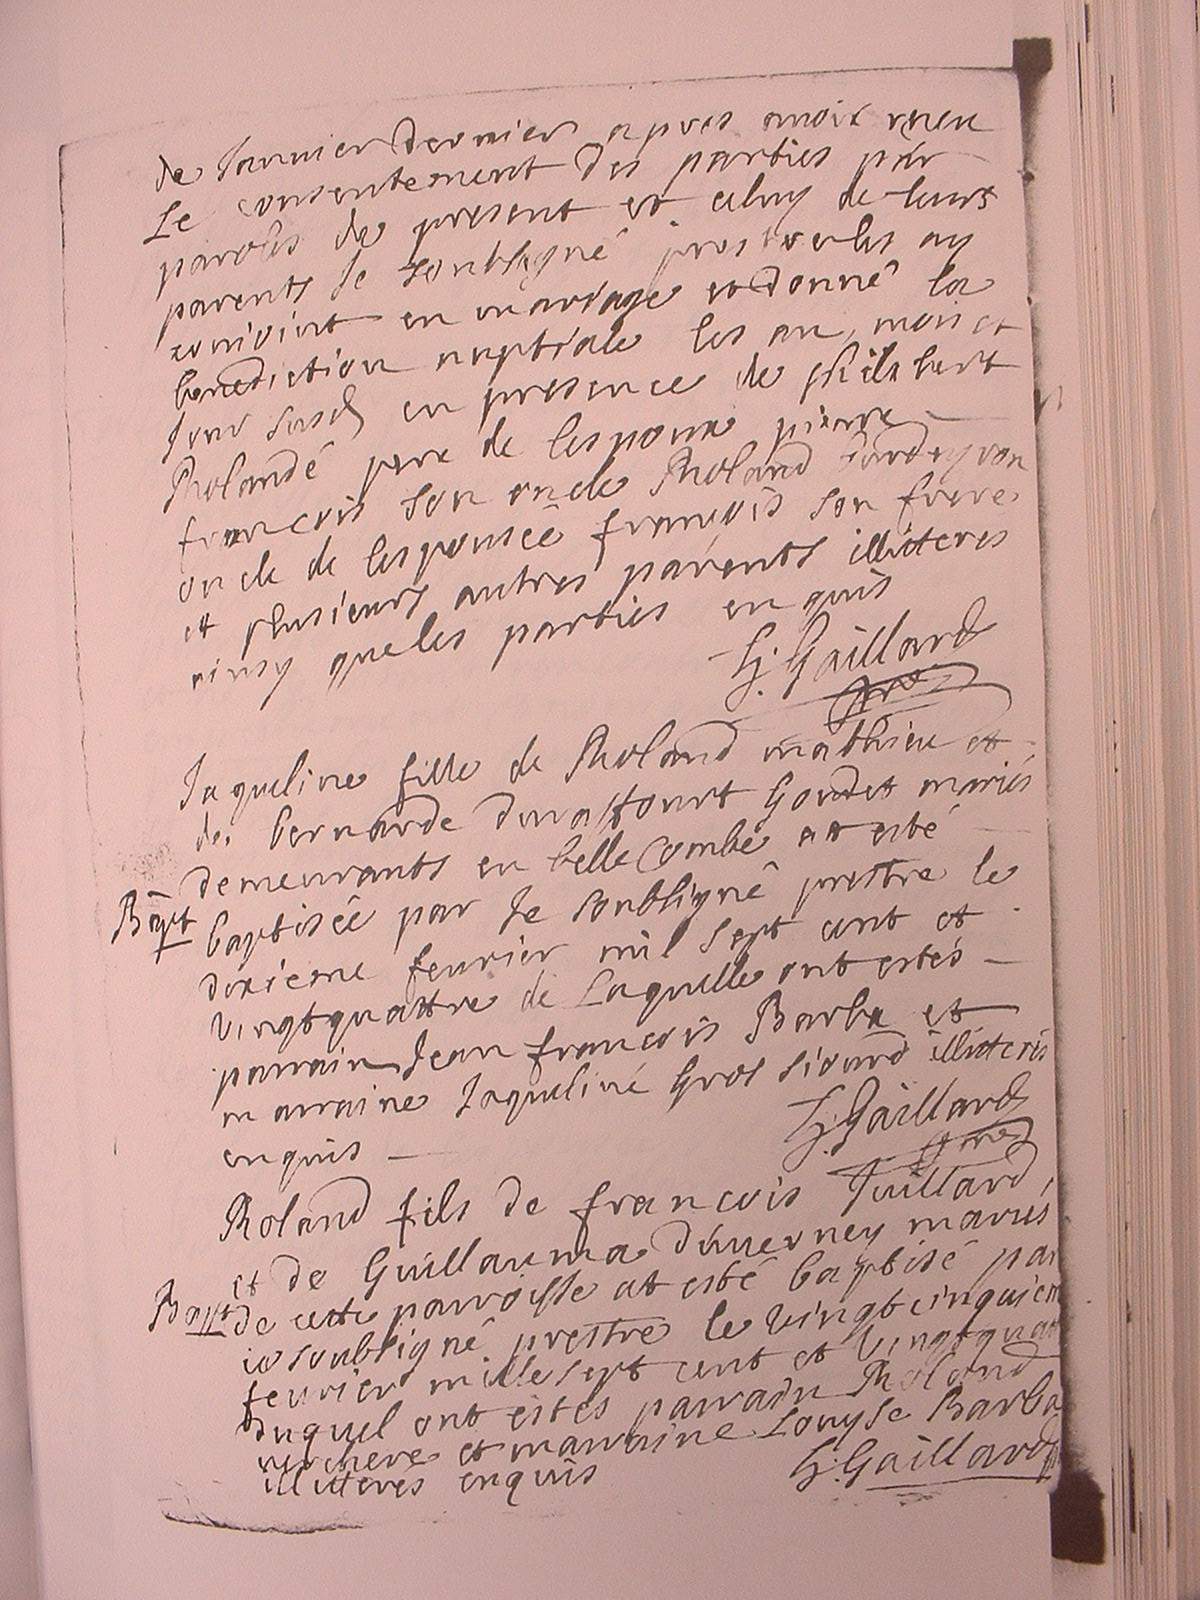 de Januier dernier apres auoir receu
Le consentement des parties par
parolles de present et celuy de leurs
parents Je soubsigné prestre les ay
conioint en mariage et donné la
benediction nuptiale les an, mois et
Jour susd en presence de philibert
Rolande pere de lespoux pierre
francois son oncle Roland
oncle de lespousée françois son frere
et plusieurs autres parents illitteres
ainsy que les parties enquis
G. Gaillard
Jaqueline fille de Roland mathieu et
de bernarde Goudet mariés
demeurants en belle Combe at esté
Bapt baptisée par Je soubsigné prestre le
dixieme feurier mil sept cent et
vingtquattre de Laquelle ont estés
parrain Jean francois Barba et
marraine Jaqueline Gros illitteris
enquis
G. Gaillard
Roland fils de francois Juillard,
et de Guillauma duuerney mariés
Bapt de cette parroisse at esté baptisé par
ie soubsigné prestre le vingtcinquiem
feurier mille sept cent et vingtquat
Duquel ont estés parrain Roland
verchere et marraine Louyse Barba
illitteres enquis
G. Gaillard